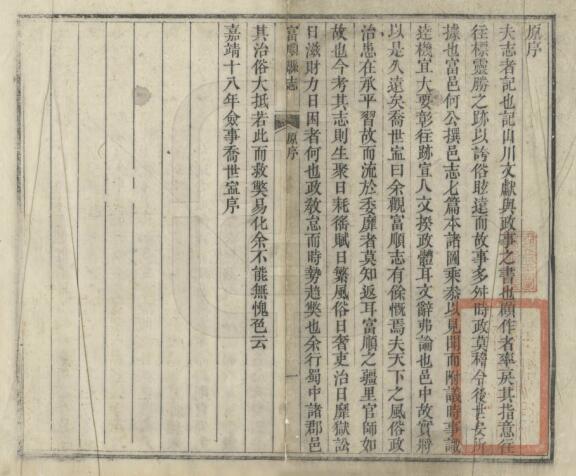 原序
夫志者記也記山川文獻與政事之書也顧作者率戾其指意往
往標靈勝之跡以誇俗眩遠而故事多舛時政莫稽令後世安所
據也富邑何公撰邑志七篇本諸圖乘叅以見聞而附議時事識
達機宜大要彰往跡宜人文揆政體耳文辭弗論也邑中故實將
以是久遠矣喬世寍曰余觀富順志有餘慨焉夫天下之風俗政
治患在承平習故而流於委靡者莫知返耳富順之疆里官師如
故也今考其志則生聚日耗徭賦日繁風俗日奢吏治日靡獄訟
日滋財力日困者何也政敎怠而時勢趨獘也余行蜀中諸郡邑
富順縣志
原序
一
其治俗大抵若此而救獘易化余不能無愧色云
嘉靖十八年僉事喬世寍序